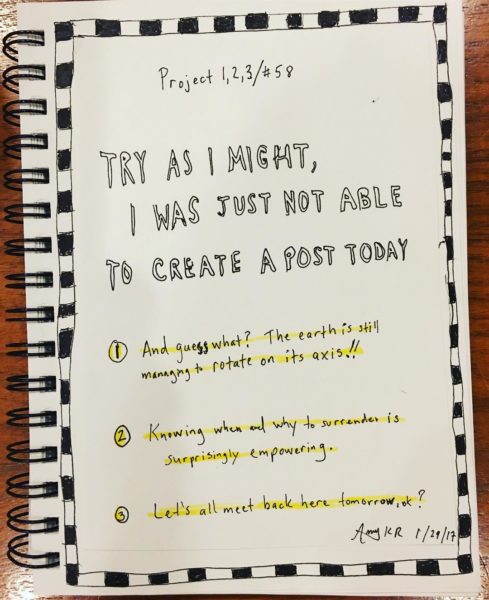 Project 1,2,3/#58
TRY AS I MIGHT,
I WAS JUST NOT ABLE
TO CREATE A POST TODAY
1 And guess what? The earth is still
managing to rotate on its axis!!
2 Knowing when and why to surrender is
surprisingly empowering.
3 Let's all meet back here tomorrow, ok?
Amy KR 1/29/17